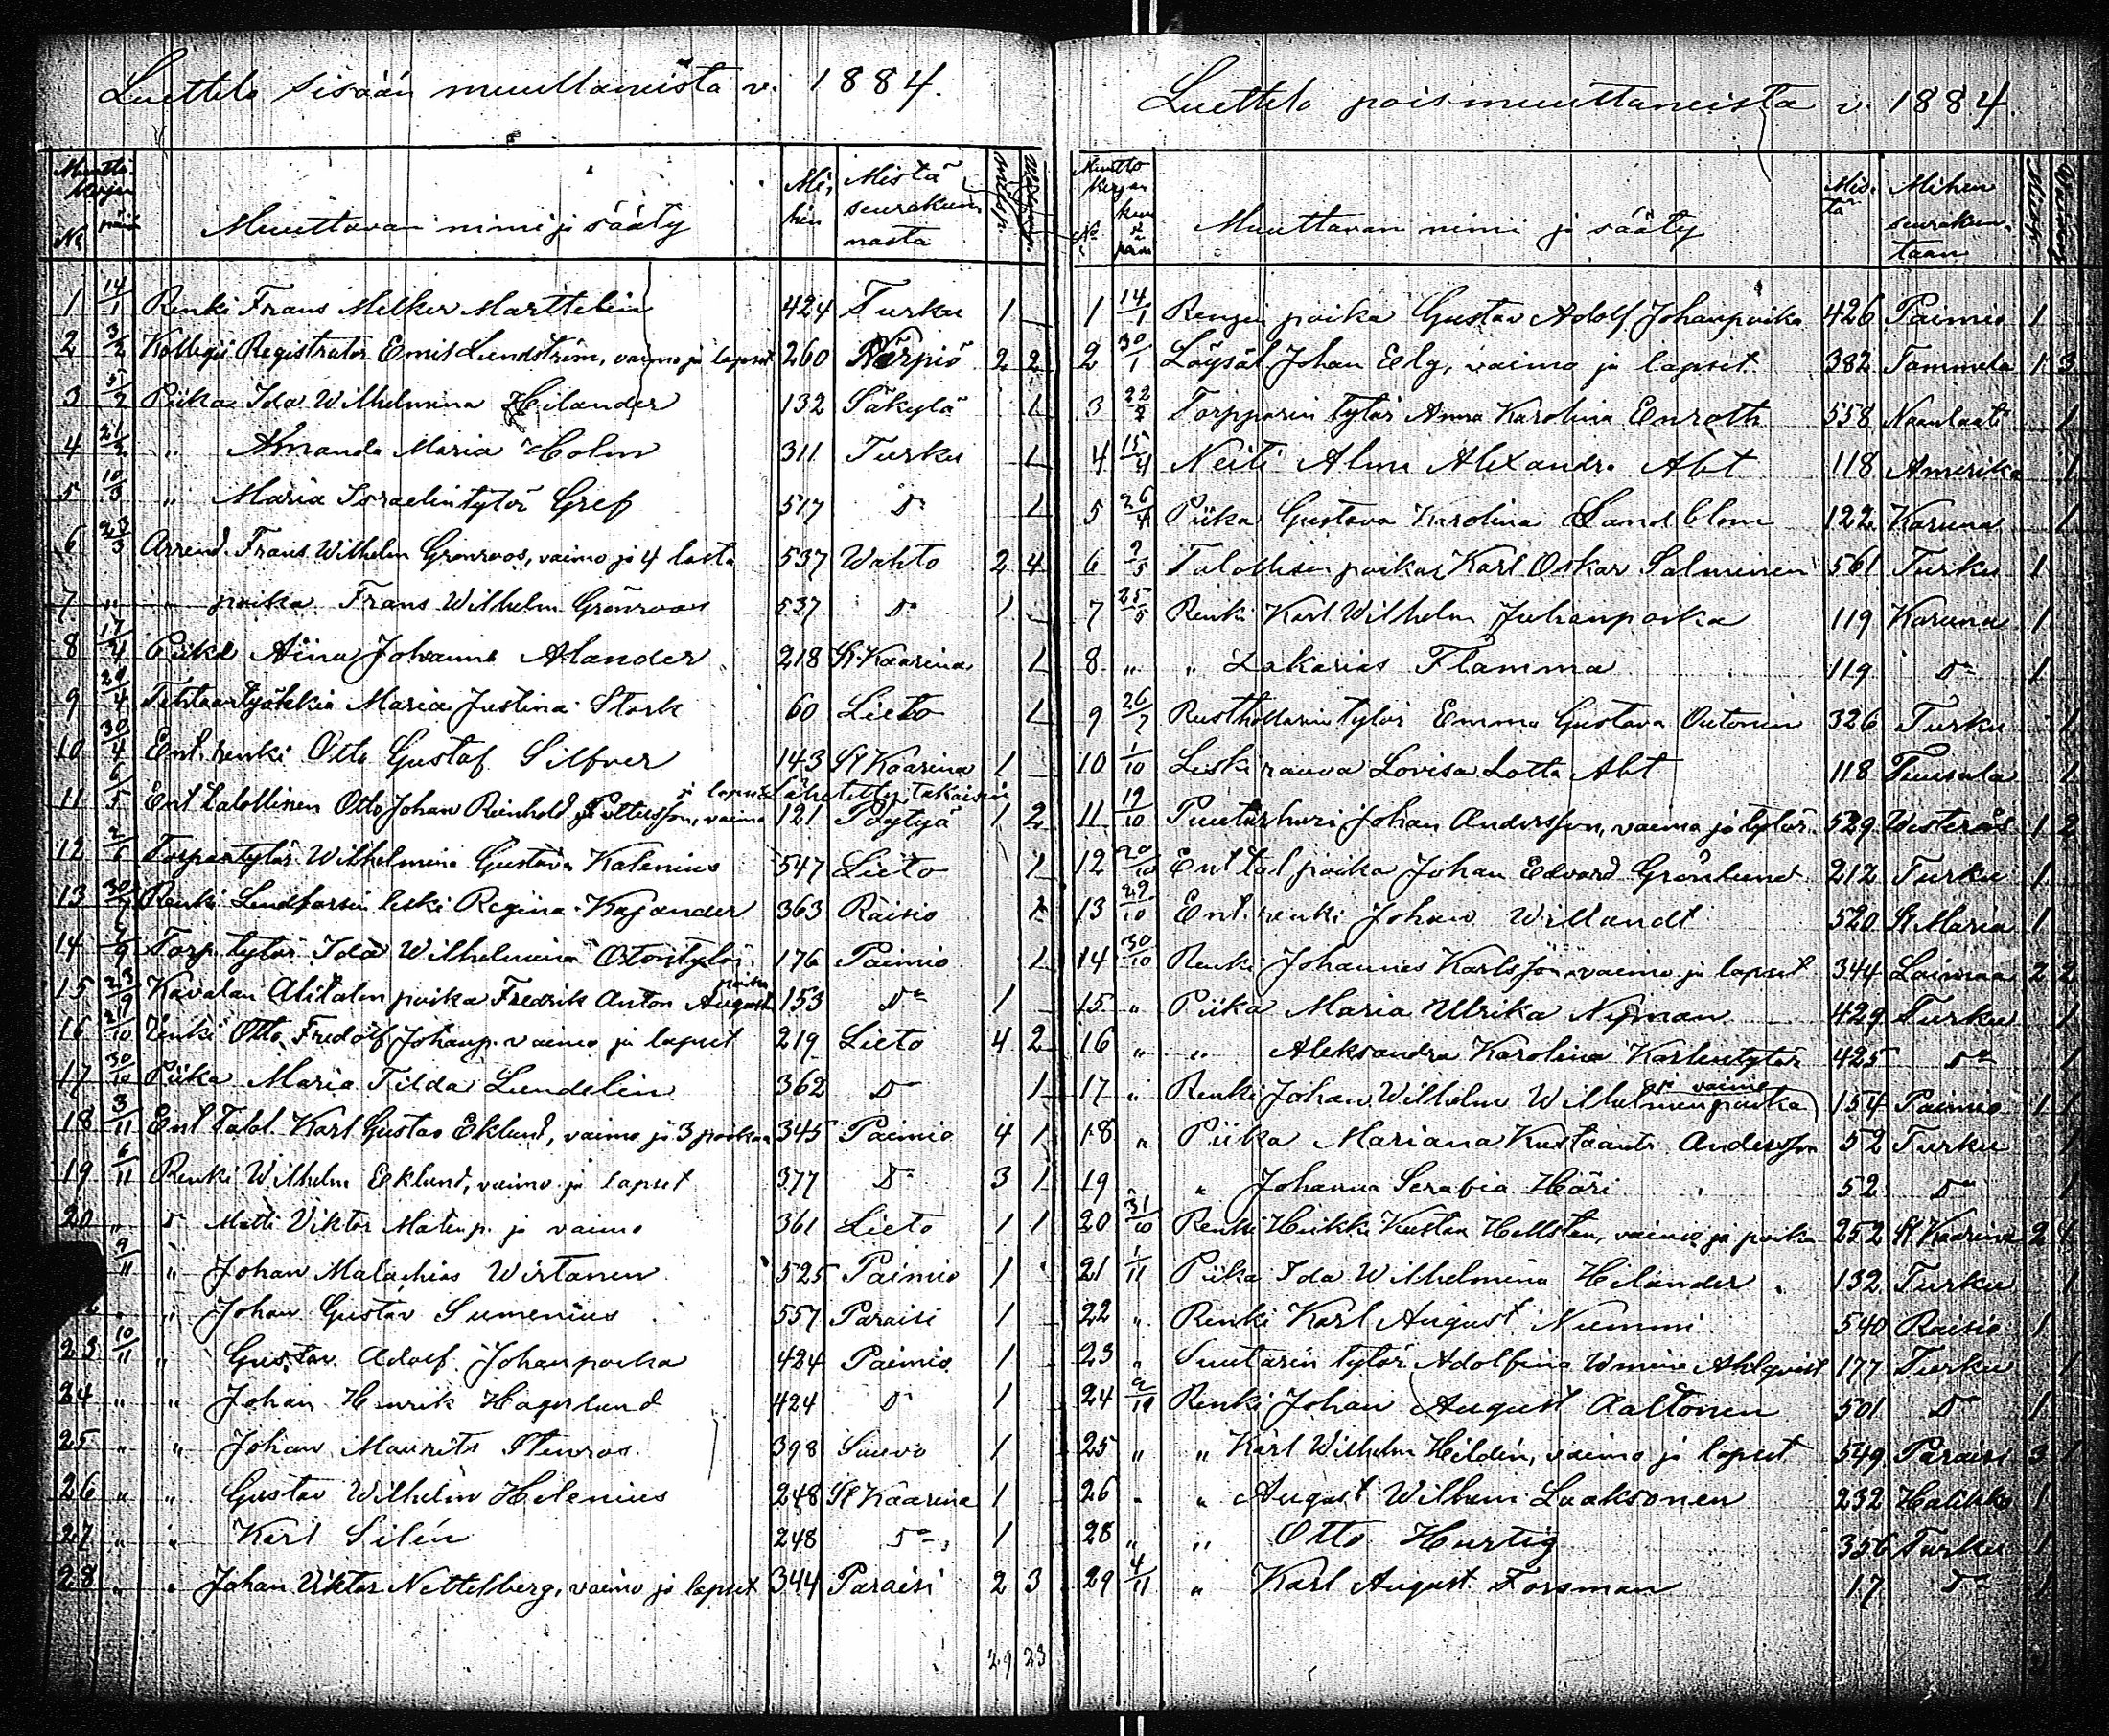 Luettelo sisään muuttaneista v. 1884.
Muutto kirjan
No päivä
Muuttavan nimi ja sääty
Mihin
Mistä seurakunnasta
miesp. vaimop.
1 14/1 Renki Frans Melker Marttelin 424 Turku 1
2 3/2 Kollegii Registrator Emil Lundström, vaimo ja lapset 260 Närpiö 2 2
3 5/2 Piika Ida Wilhelmina Hilander 132 Säkylä 1
4 21/2 " Amanda Maria Holm 311 Turku 1
5 10/3 " Maria Israelintytör Gref 517 Do 1
6 23/3 Arrend. Frans Wilhelm Grönroos, vaimo ja 4 lasta 537 Wahto 2 4
7 " " poika Frans Wilhelm Grönroos 537 Do 1
8 17/4 Piika Aina Johanna Alander 218 St Kaarina 1
9 29/4 Tehtaantyökkiä Maria Justina Stark 60 Lieto 1
10 30/4 Ent. renki Otto Gustaf Silfver 143 St Kaarina 1
ja lapset Lähetetty takaisin
11 6/5 Ent talollinen Otto Johan Reinhold Pettersson, vaimo 121 Pöytyä 1 2
12 2/6 Torpantytör Wilhelmina Gustava Kalenius 547 Lieto 1
13 30/7 Renki Lindforsin leski Regina Kajander 363 Raisio 1
14 /9 Torp. tytör Ida Wilhelmina Otontytör 176 Paimio 1
poika
15 23/9 Kavalan Alitalon poika Fredrik Anton August 153 Do 1
16 2/10 Renki Otto Fredolf Johanp. vaimo ja lapset 219 Lieto 4 2
17 30/10 Piika Maria Tilda Lundelin 362 Do 1
18 3/11 Ent Talol. Karl Gustav Eklund, vaimo ja 3 poikaa 345 Paimio 4 1
19 6/11 Renki Wilhelm Eklund, vaimo ja lapset 377 Do 3 1
20 " Do Matti Viktor Matinp. ja vaimo 361 Lieto 1 1
9/11 " Johan Malachias Wirtanen 525 Paimio 1
" " Johan Gustav Sumenius 557 Paraisi 1
23 10/11 " Gustav Adolf Johanpoika 424 Paimio 1
24 " " Johan Henrik Hagerlund 424 Do 1
25 " " Johan Maurits Stenros 398 Sauvo 1
26 " " Gustav Wilhelm Helenius 248 St Kaarina 1
27 " " Karl Silén 248 Do 1
28 " " Johan Viktor Nettelberg, vaimo ja lapset 344 Paraisi 2 3
29 23
Luettelo poismuuttaneista v. 1884.
Muutto kirjan
No kuu ja päivä
Muuttavan nimi ja sääty
Mistä
Mihin seurakuntaan
Miesp. Waimop.
1 14/1 Rengin poika Gustav Adolf Johanpoika 426 Paimio 1
2 30/1 Löysäl. Johan Elg, vaimo ja lapset 382 Tammela 1 3
3 22/2 Torpparin tytör Anna Karolina Enroth 558 Naantali 1
4 15/4 Neiti Alma Alexandra Alt 118 Amerika 1
5 26/4 Piika Gustava Karolina Sandblom 122 Karuna 1
6 2/5 Talollisen poika Karl Oskar Salminen 561 Turku 1
7 25/5 Renki Karl Wilhelm Juhanpoika 119 Karuna 1
8 " " Zakarias Flamma 119 Do 1
9 26/7 Rusthollarin tytör Emma Gustava Outonen 326 Turku 1
10 1/10 Leski rouva Lovisa Lotta Alt 118 Tuusula 1
11 19/10 Puutarhuri Johan Andersson, vaimo ja tytär 529 Westerås 1 2
12 20/10 Ent tal poika Johan Edvard Grönlund 212 Turku 1
13 29/10 Ent. renki Johan Willandt 520 St Maria 1
14 30/10 Renki Johannes Karlsson vaimo ja lapset 344 Loimaa 2 2
15 " Piika Maria Ulrika Nyman 429 Turku 1
16 " " Aleksandra Karolina Karlentytär 425 Do 1
ja vaimo
17 " Renki Johan Wilhelm Wilhelminpoika 154 Paimio 1 1
18 " Piika Mariana Kustaanti Andersson 52 Turku 1
19 " Johanna Serafia Höri 52 Do 1
20 31/10 Renki Heikki Kustaa Hellsten, vaimo ja poika 252 St Kaarina 2 1
21 1/11 Piika Ida Wilhelmina Hilander 132 Turku 1
22 " Renki Karl August Nummi 540 Raisio 1
23 " Suutarin tytör Adolfina Wmina Ahlqvist 177 Turku 1
24 2/11 Renki Johan August Aaltonen 501 Do 1
25 " " Karl Wilhelm Hildén, vaimo ja lapset 549 Paraisi 3 1
26 " " August Wilhem Laaksonen 232 Halikko 1
28 " " Otto Hurtig 356 Turku 1
29 4/11 " Karl August Forsman 17 Do 1